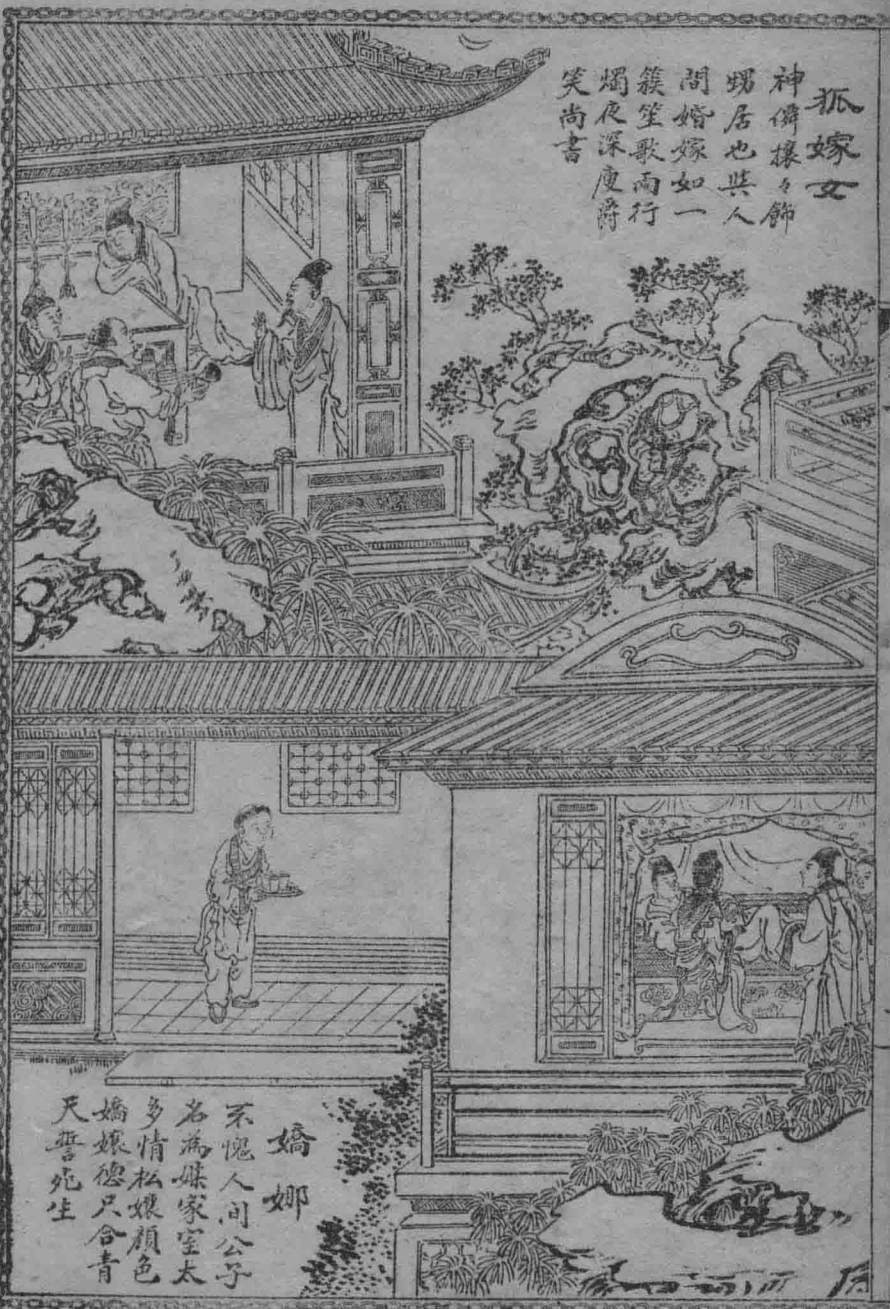 狐嫁女
神僊攘々飾
甥居也與人
間婚嫁如一
簇笙歌兩行
燭夜深慶爵
笑尚書
嬌娜
不愧人间公子
名為媒家室太
多情松孃顏色
嬌孃德只合青
天誓死生